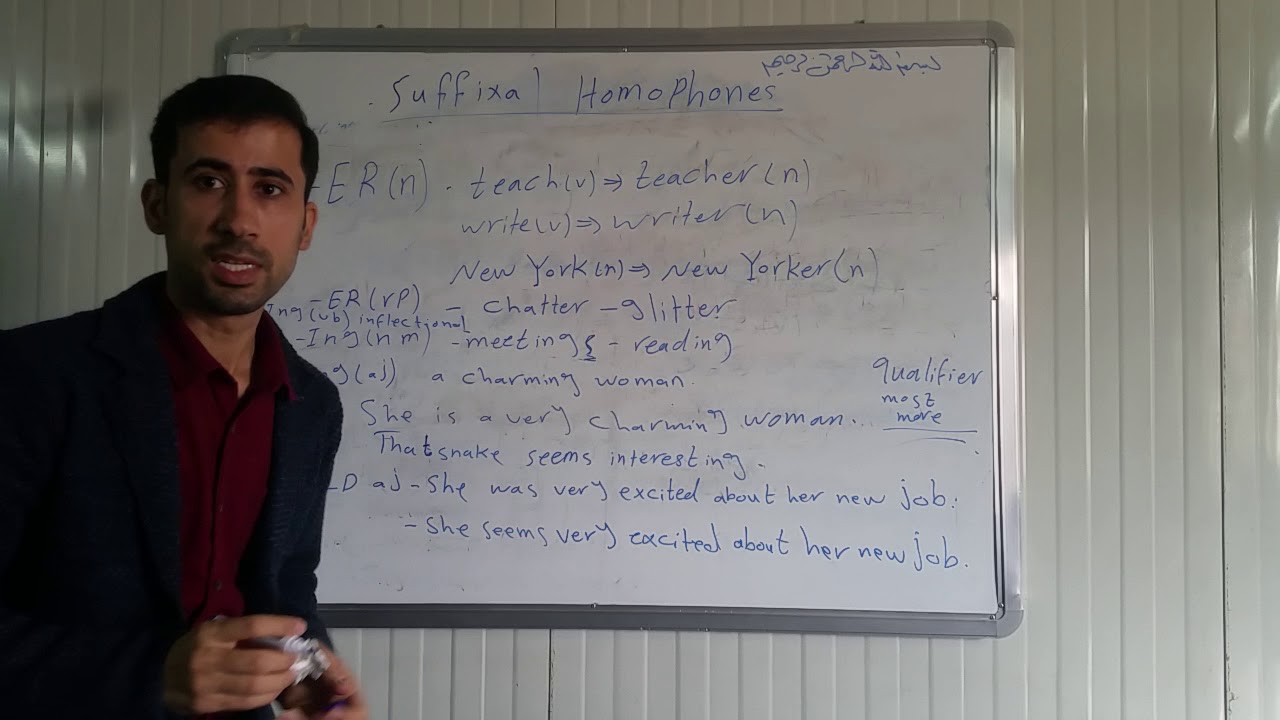 Suffixal Homophones
-ER(n) . teach(v)⇒ teacher(n)
write(v)⇒ writer(n)
New York(n)⇒ New Yorker(n)
-ER(rp) - chatter - glitter
Ing(vb) inflectional
-Ing(nm) -meetings - reading
g(aj) a charming woman.
She is a very charming woman..
qualifier
most
more
That snake seems interesting.
-D aj - She was very excited about her new job.
- She seems very excited about her new job.